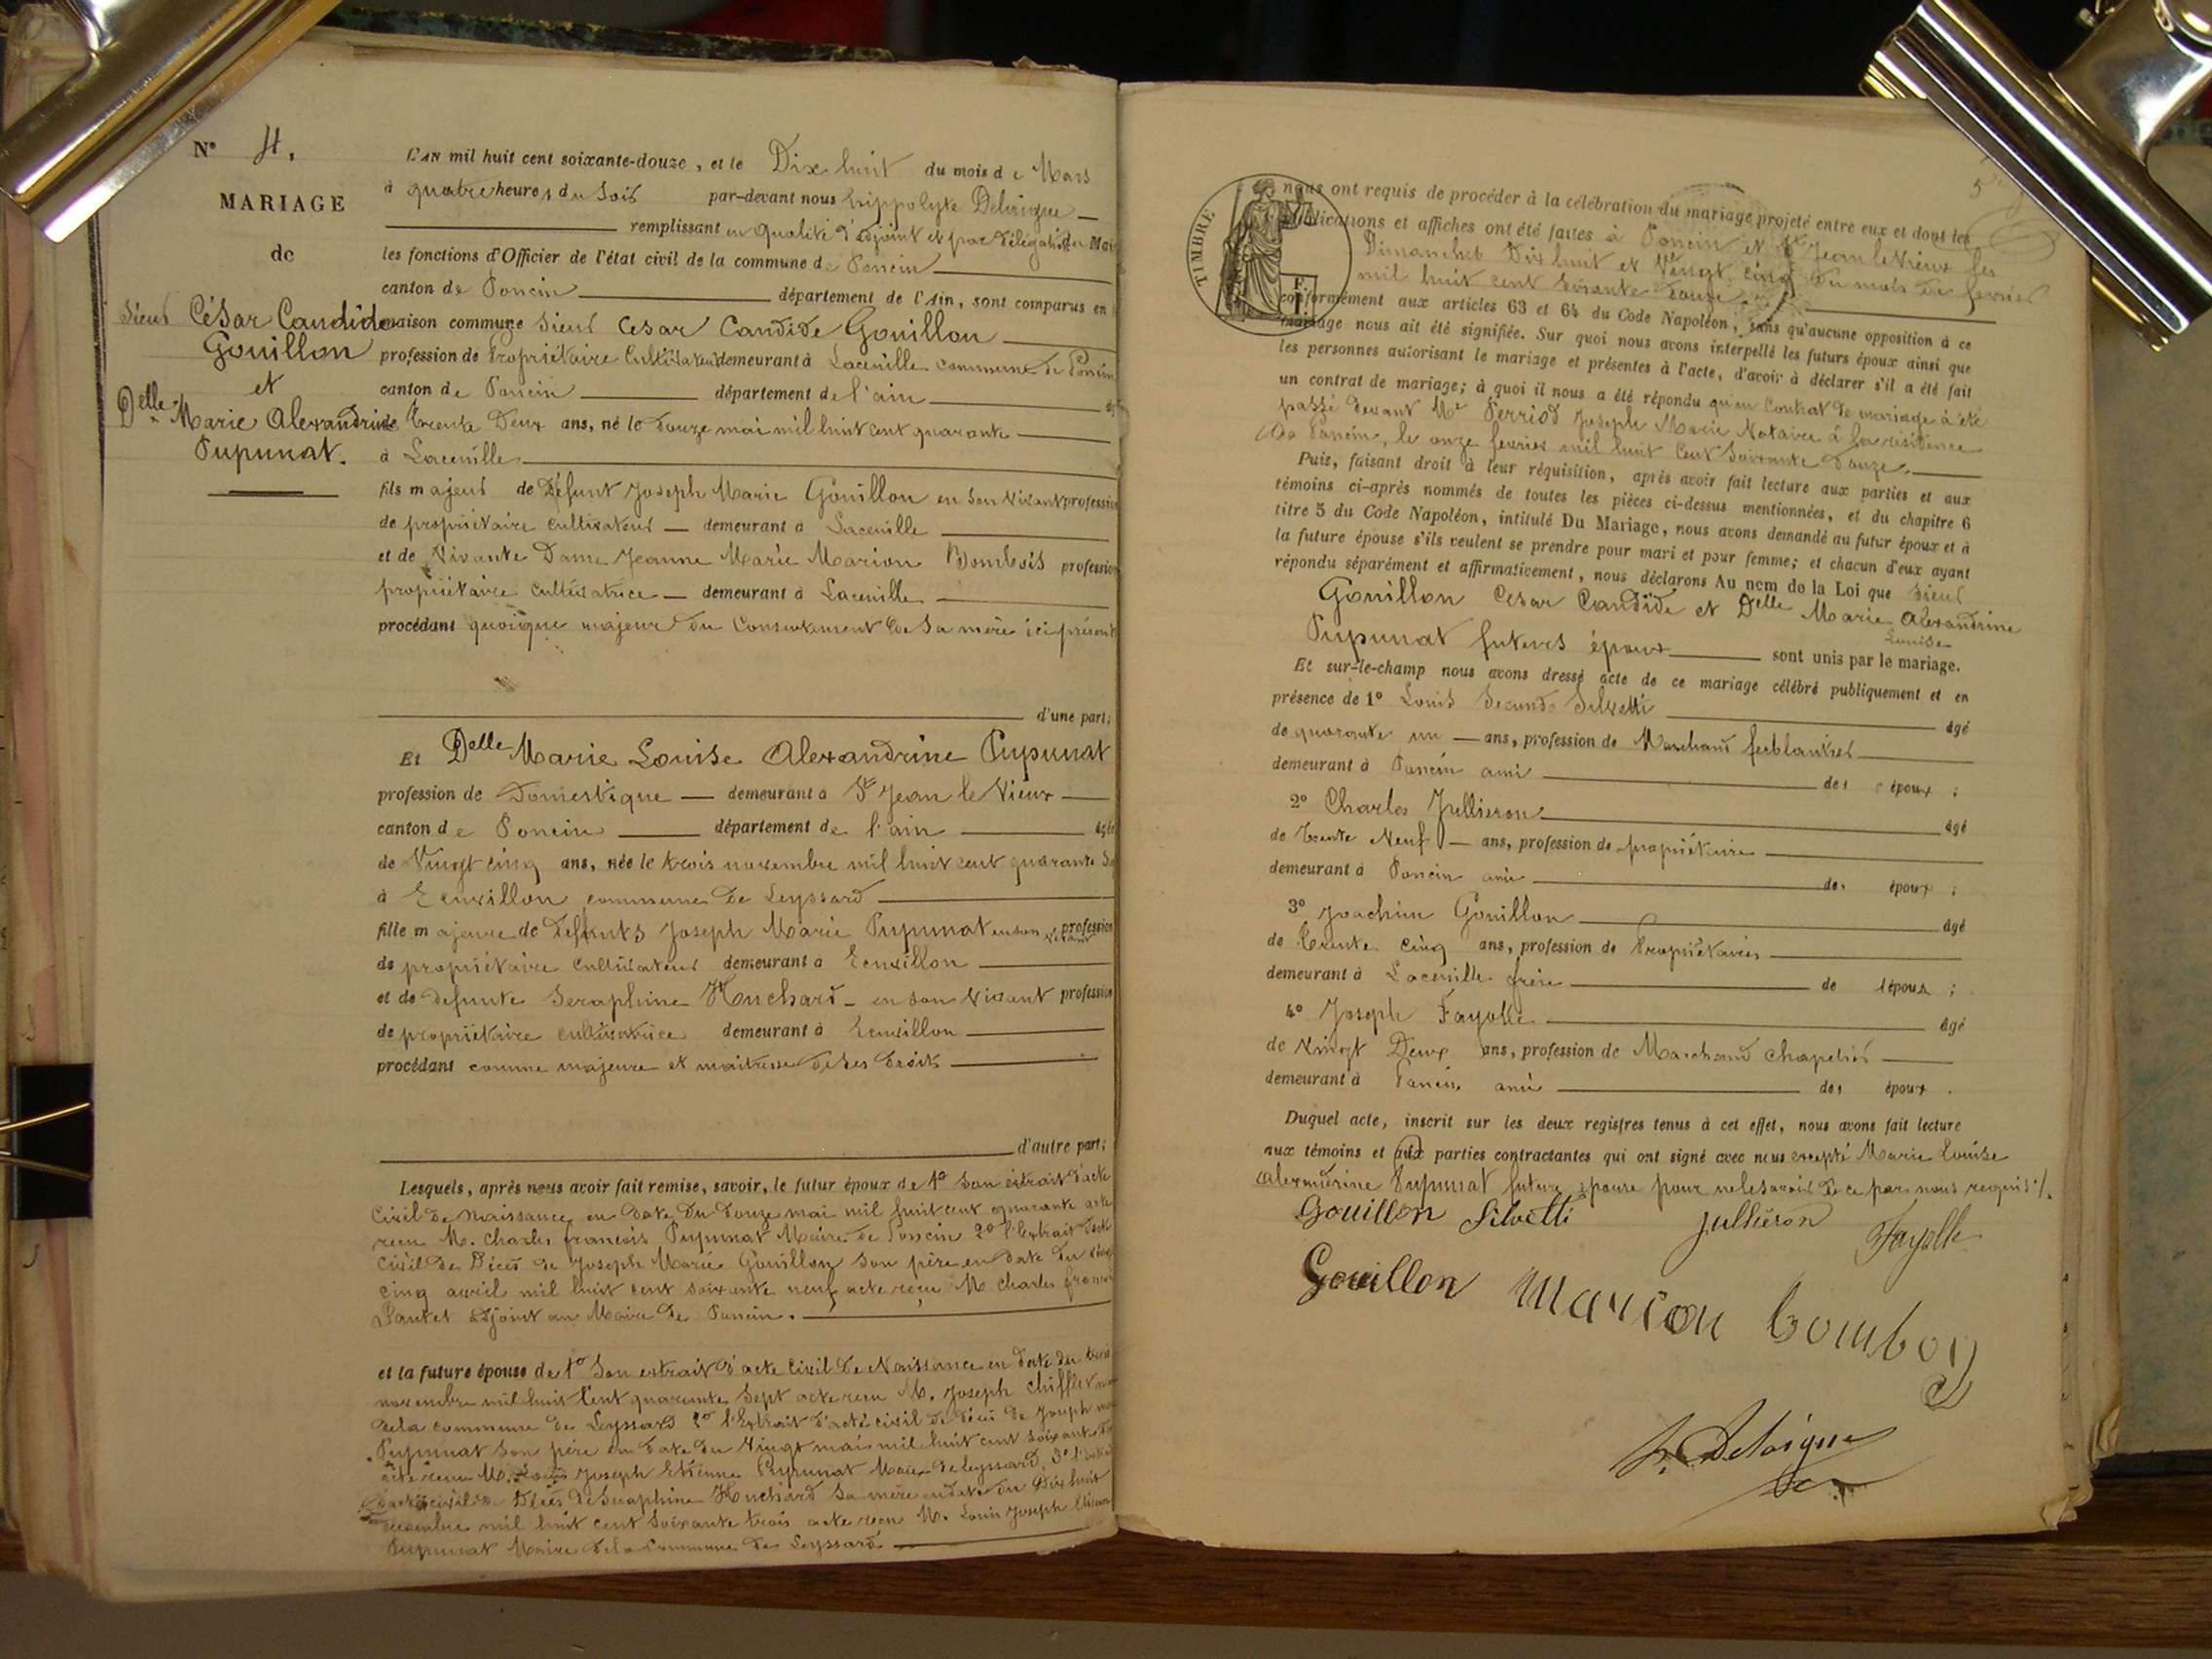 N° 4.
MARIAGE
de
Sieur César Candide
Gouillon
et
Delle Marie Alexandrine
Pupunat.
L'AN mil huit cent soixante-douze, et le Dix huit du mois de Mars
à quatre heures du soir par-devant nous hippolyte Deloigue
remplissant en qualité d'adjoint et par délégation du Mai
les fonctions d'Officier de l'état civil de la commune de Poncin
canton de Poncin département de l'Ain, sont comparus en
maison commune Sieur César Candide Gouillon
profession de Propriétaire Cultivateur demeurant à Lacueille commune de Poncin
canton de Poncin département de l'ain
de trente Deux ans, né le douze mai mil huit cent quarante
à Lacueille
fils majeur de Défunt Joseph Marie Gouillon en son vivant profession
de propriétaire cultivateur demeurant à Lacueille
et de vivante Dame Jeanne Marie Marion Bombois profession
propriétaire cultivatrice demeurant à Lacueille
procédant quoique majeur du Consentement de Sa mère ici présente
d'une part;
Et Delle Marie Louise Alexandrine Pupunat
profession de Domestique demeurant à St Jean le Vieux
canton de Poncin département de l'ain âgée
de Vingt cinq ans, née le trois novembre mil huit cent quarante
à Ecuvillon commune de Leyssard
fille majeure de Défunts Joseph Marie Pupunat en son vivant profession
de propriétaire Cultivateur demeurant à Ecuvillon
et de defunte Seraphine Huchard en son vivant profession
de propriétaire cultivatrice demeurant à Ecuvillon
procédant comme majeure et maitresse de ses droits
d'autre part;
Lesquels, après nous avoir fait remise, savoir, le futur époux de 1° Son extrait d'acte
Civil de Naissance en date du douze mai mil huit cent quarante acte
reçu M. Charles françois Pupunat Maire de Poncin 2° l'Extrait d'acte
Civil de Décès de Joseph Marie Gouillon Son père en date du vingt
cinq avril mil huit cent soixante neuf acte reçu M Charles françois
adjoint au Maire de Poncin.
et la future épouse de 1° Son extrait d'acte Civil de Naissance en date du trois
novembre mil huit Cent quarante Sept acte reçu M. Joseph Chifflet
de la commune de Leyssard 2° l'Extrait d'acte civil de décès de Joseph
Pupunat Son père en date du Vingt mai mil huit cent soixante
acte reçu M. Louis Joseph Etienne Pupunat Maire de Leyssard, 3° l'extrait
d'acte civil de Décès de Seraphine Huchard Sa mère en date du Dix huit
mil huit cent soixante trois acte reçu M. Louis Joseph Etienne
Pupunat Maire de la Commune de Leyssard
TIMBRE
5
nous ont requis de procéder à la célébration du mariage projeté entre eux et dont les
publications et affiches ont été faites à Poncin et St Jean le Vieux les
Dimanches Dix huit et Vingt cinq du mois de fevrier
mil huit cent soixante douze
conformément aux articles 63 et 64 du Code Napoléon, sans qu'aucune opposition à ce
mariage nous ait été signifiée. Sur quoi nous avons interpellé les futurs époux ainsi que
les personnes autorisant le mariage et présentes à l'acte, d'avoir à déclarer s'il a été fait
un contrat de mariage; à quoi il nous a été répondu qu'un Contrat de mariage à été
passé devant Me Perriod Joseph Marie Notaire à la résidence
de Poncin, le onze fevrier mil huit Cent Soixante Douze.
Puis, faisant droit à leur réquisition, après avoir fait lecture aux parties et aux
témoins ci-après nommés de toutes les pièces ci-dessus mentionnées, et du chapitre 6
titre 5 du Code Napoléon, intitulé Du Mariage, nous avons demandé au futur époux et à
la future épouse s'ils veulent se prendre pour mari et pour femme; et chacun d'eux ayant
répondu séparément et affirmativement, nous déclarons Au nom de la Loi que Sieur
Gouillon Cesar Candide et Delle Marie Alexandrine
Louise
Pupunat futurs époux sont unis par le mariage.
Et sur-le-champ nous avons dressé acte de ce mariage célébré publiquement et en
présence de 1° Louis Secundo Silvetti âgé
de quarante un ans, profession de Marchand ferblantier
demeurant à Poncin ami des époux;
2° Charles Jullieron âgé
de trente Neuf ans, profession de propriétaire
demeurant à Poncin ami des époux;
3° Joachim Gouillon âgé
de trente cinq ans, profession de Propriétaire
demeurant à Lacueille frère de l'époux;
4° Joseph Fayolle âgé
de Vingt Deux ans, profession de Marchand Chapelier
demeurant à Poncin ami des époux.
Duquel acte, inscrit sur les deux registres tenus à cet effet, nous avons fait lecture
aux témoins et aux parties contractantes qui ont signé avec nous excepté Marie Louise
Alexandrine Pupunat future épouse pour ne le savoir de ce par nous requis./.
Gouillon Silvetti Jullieron Fayolle
Gouillon Marion bomboy
h. Deloigue